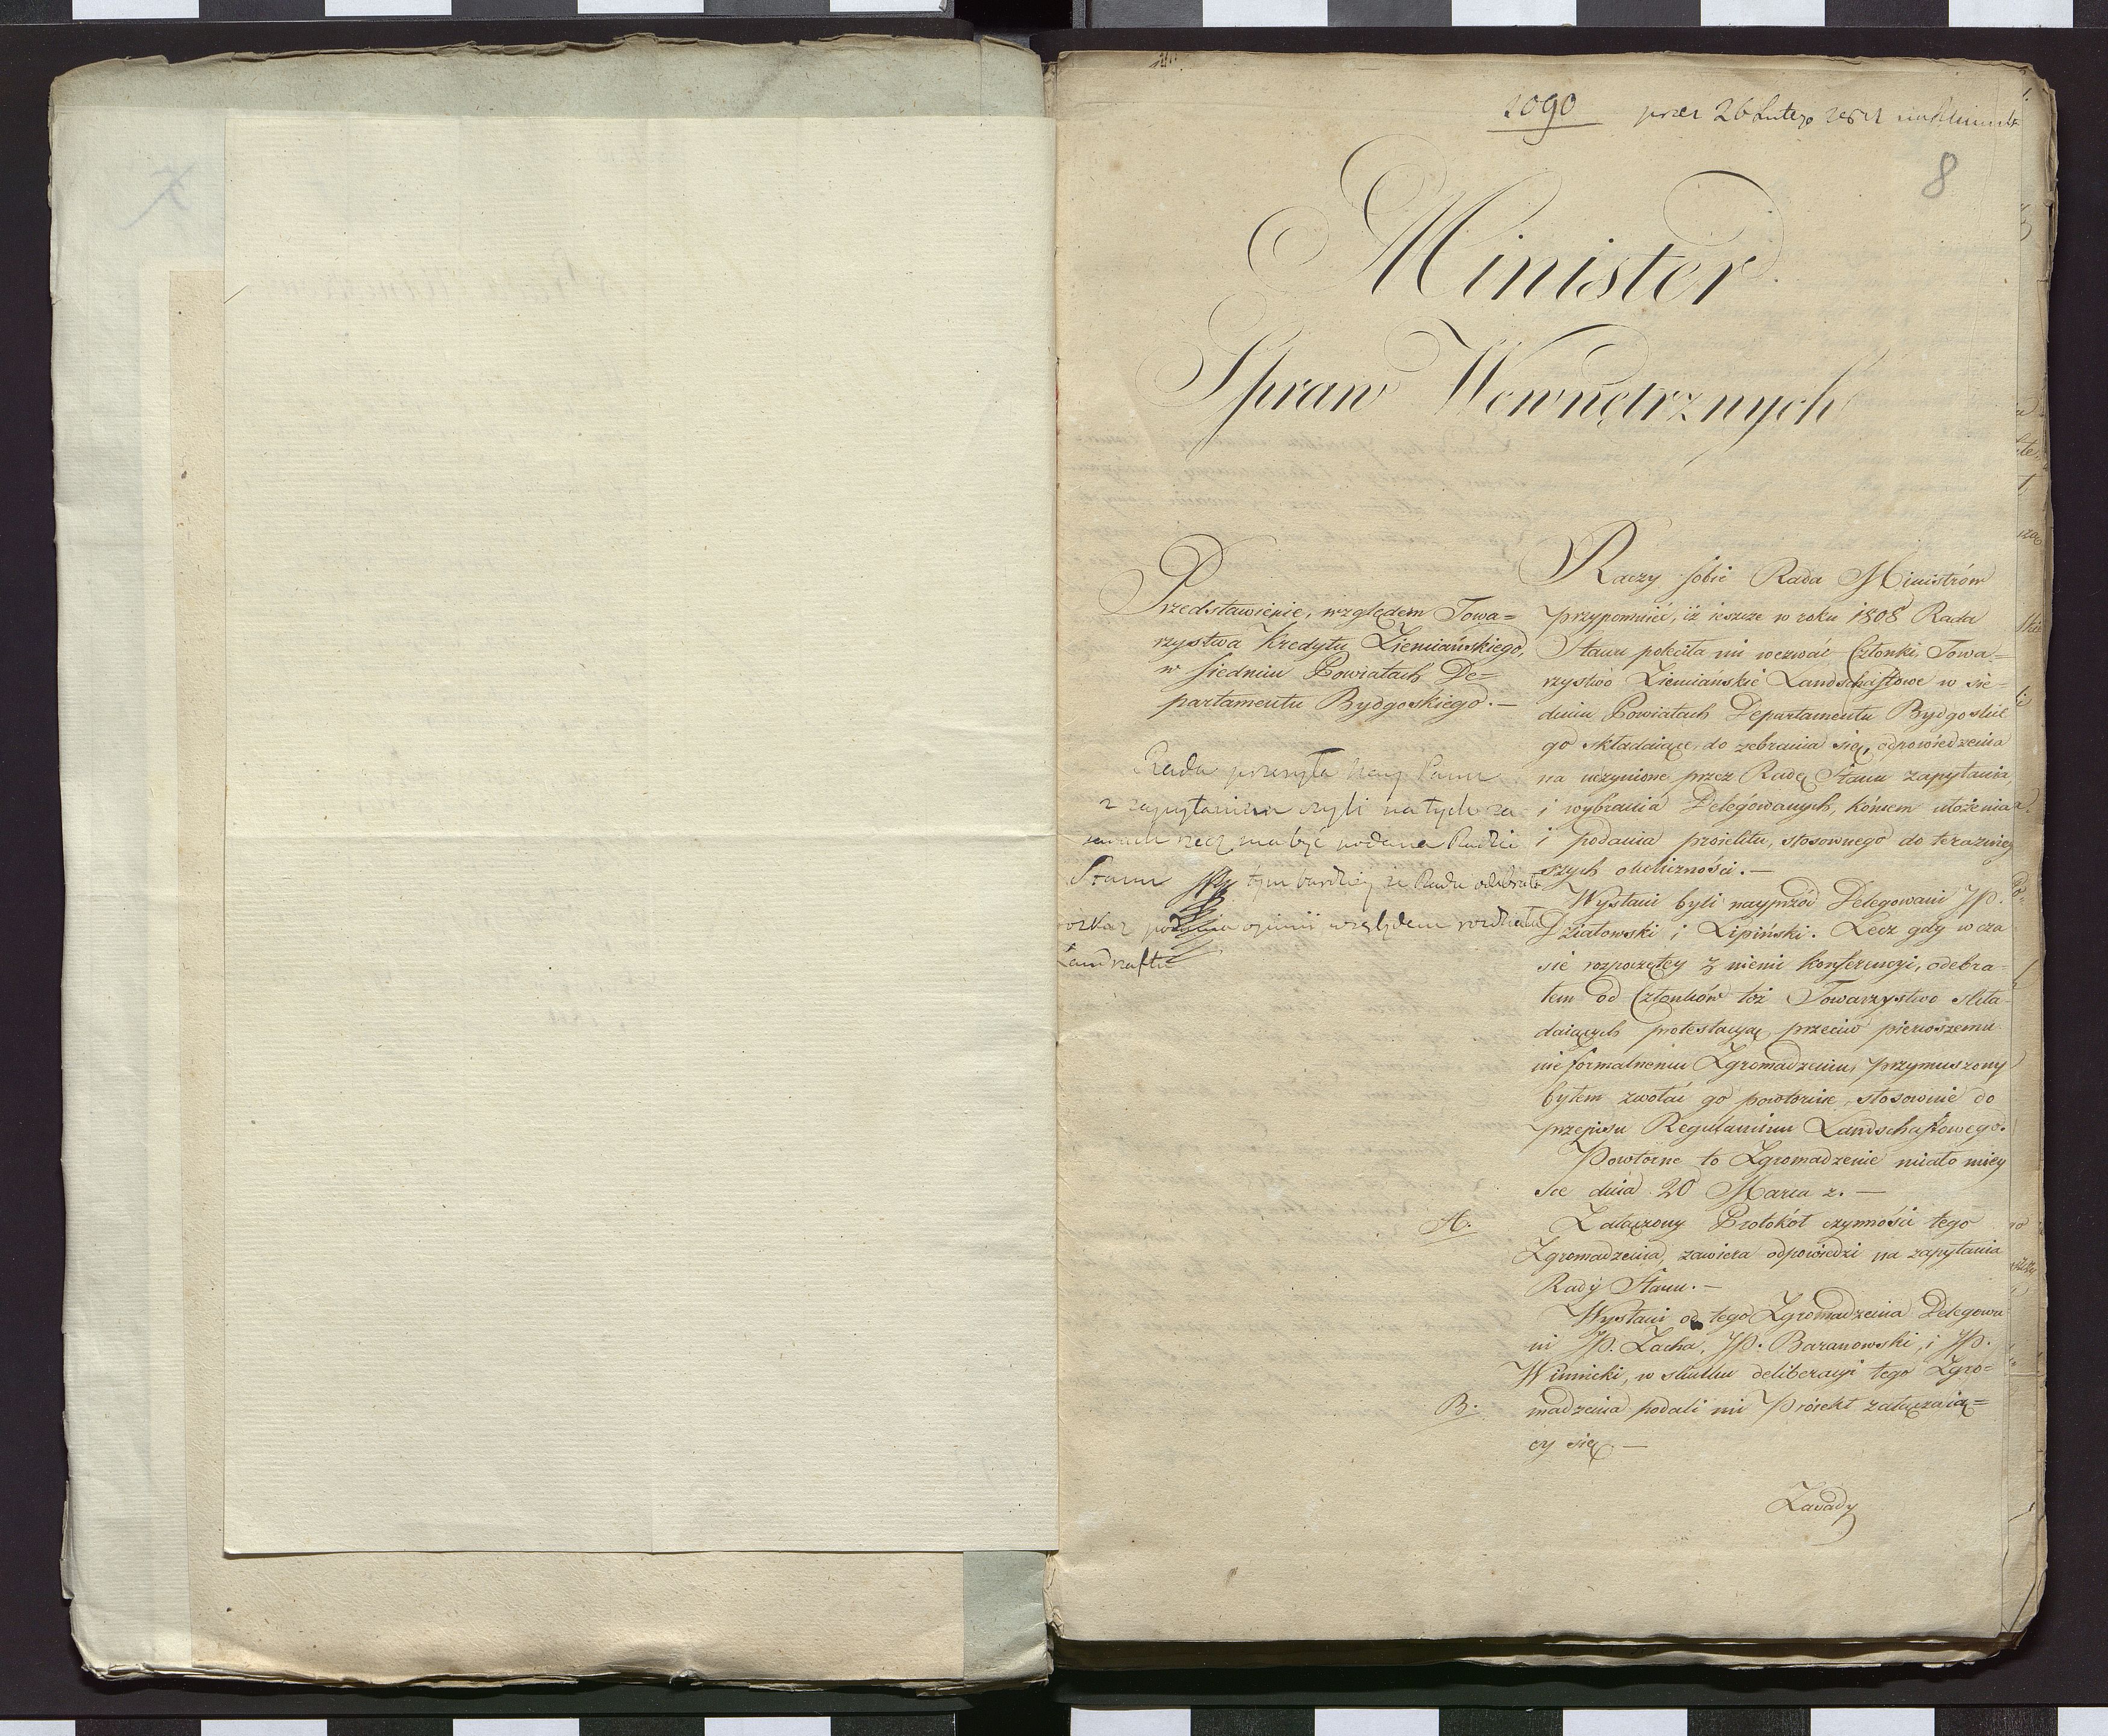 1090 26 Lutego
8
Minister
Spraw Wewnętrznych
Przedstawienie, względem Towa=
rzystwa Kredytu Ziemiańskiego,
w siedmiu Powiatach De=
partamentu Bydgoskiego.—
Rada przesyła Panu
z zapytaniem czyli na tych za
sadach rzecz ma być podana Radzie
Stanu tym bardziej że Rada odebrała
rozkaz opinii względem rozdziału
Landszaftu
Raczy sobie Rada Ministrów
przypomnieć, iż ieszcze w roku 1808 Rada
Stanu poleciła mi wezwać Członki, Towa=
rzystwo Ziemiańskie Landschaftowe w sie=
dmiu Powiatach Departamentu Bydgoskie
go składaiące, do zebrania się, odpowiedzenia
na uczynione przez Radę Stanu zapytania,
i wybrania Delegowanych, końcem ułożenia
i podania proiektu, stosownego do teraźniey
szych okoliczności.—
Wysłani byli nayprzód Delegowani JP.
Działowski i Lipiński. Lecz gdy w cza
sie rozpoczętey z niemi konferencyi, odebra=
łem od Członków toż Towarzystwo skła=
daiących protestacyą, przeciw pierwszemu
nieformalnemu Zgromadzeniu, przymuszony
byłem zwołać go powtórnie, stosownie do
przepisu Regulaminu Landschaftowego.
Powtórne to Zgromadzenie miało miey
sce dnia 20 Marca r.—
A. Załączony Protokół czynności tego
Zgromadzenia, zawiera odpowiedzi na zapytania
Rady Stanu.—
Wysłani od tego Zgromadzenia Delegowa
ni JP. Zacha, JP. Baranowski, i JP.
Winnicki, w skutku deliberacyi tego Zgro=
B. madzenia podali mi Proiekt załączaią=
cy się.—
Zasady